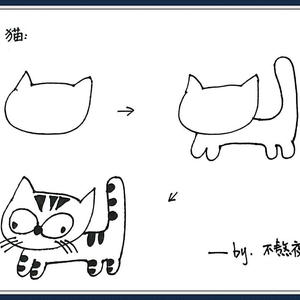 猫:
—by. 不熬夜